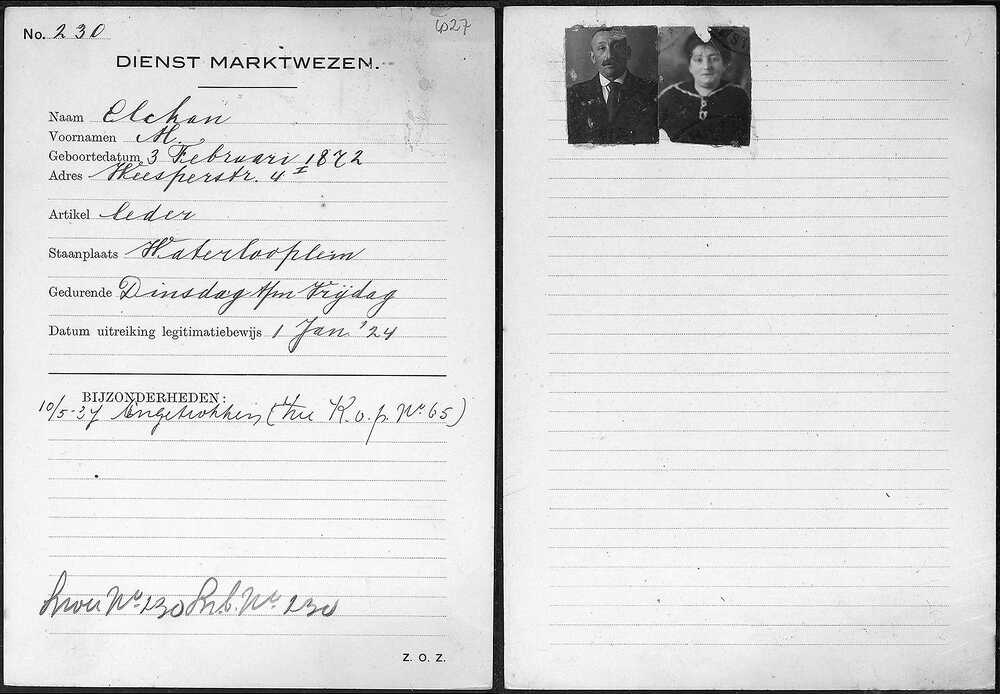 No. 230
4027
DIENST MARKTWEZEN.
Naam Elchan
Voornamen M.
Geboortedatum 3 Februari 1872
Adres Weesperstr. 4 I
Artikel leder
Staanplaats Waterlooplein
Gedurende Dinsdag t/m Vrijdag
Datum uitreiking legitimatiebewijs 1 Jan. '24
BIJZONDERHEDEN:
10/5-37 Ingetrokken (zie K.o.p. No. 65)
No 230 No 230
Z. O. Z.